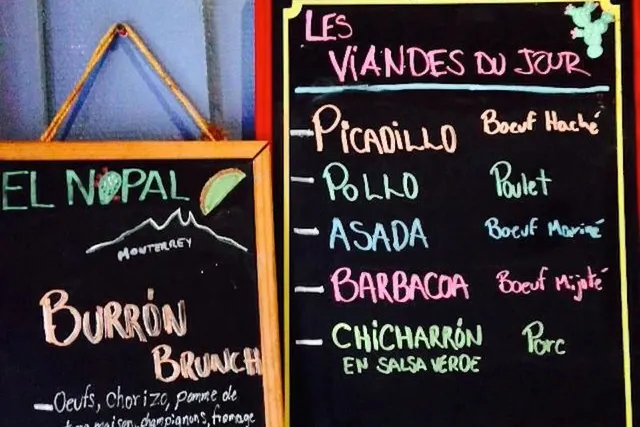 EL NOPAL
MONTERREY
BURRÓN
BRUNCH
Oeufs, Chorizo, pomme de
maison, champignons, fromage
LES
VIANDES DU JOUR
PICADILLO Boeuf Haché
POLLO Poulet
ASADA Boeuf Mariné
BARBACOA Boeuf Mijoté
CHICHARRÓN Porc
EN SALSA VERDE